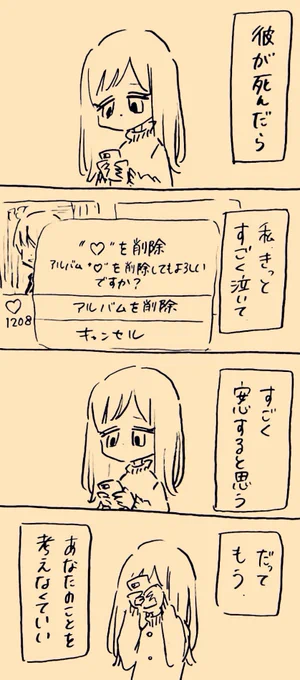 彼が死んだら
私、きっと
すごく泣いて
"♡"を削除
アルバム"♡"を削除してもよろしい
ですか?
アルバムを削除
キャンセル
♡
1208
すごく
安心すると思う
だって
もう、
あなたのことを
考えなくていい